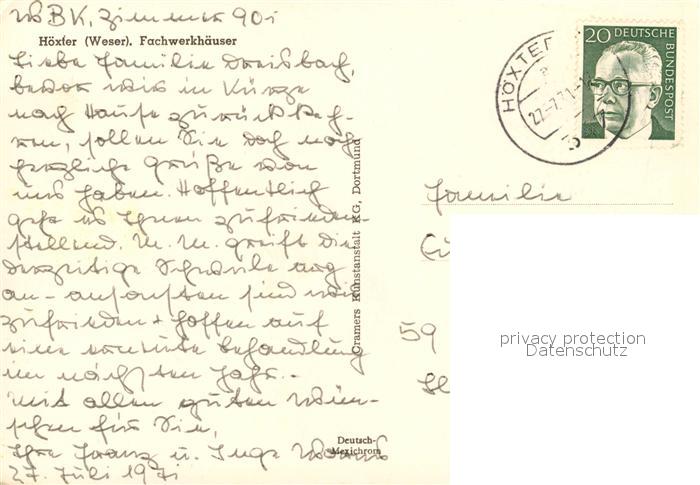 WBK, Zimmer 901
Höxter (Weser). Fachwerkhäuser
Liebe Familie Dreisbach,
bevor wir in Kürze
nach Hause zurückkeh-
ren, sollen Sie doch noch
herzliche Grüße von
uns haben. Hoffentlich
geht es Ihnen zufrieden-
stellend. M. M. greift die
derzeitige Schwüle arg
an - ansonsten sind wir
zufrieden + hoffen auf
eine erneute Behandlung
im nächsten Jahr. -
Mit allen guten Wün-
schen für Sie,
Ihre Franz u. Inge
27. Juli 1971
Cramers Kunstanstalt KG, Dortmund
Deutsch-
Mexichrom
HÖXTER
27.-7.71
20 DEUTSCHE
BUNDESPOST
Familie
59
privacy protection
Datenschutz